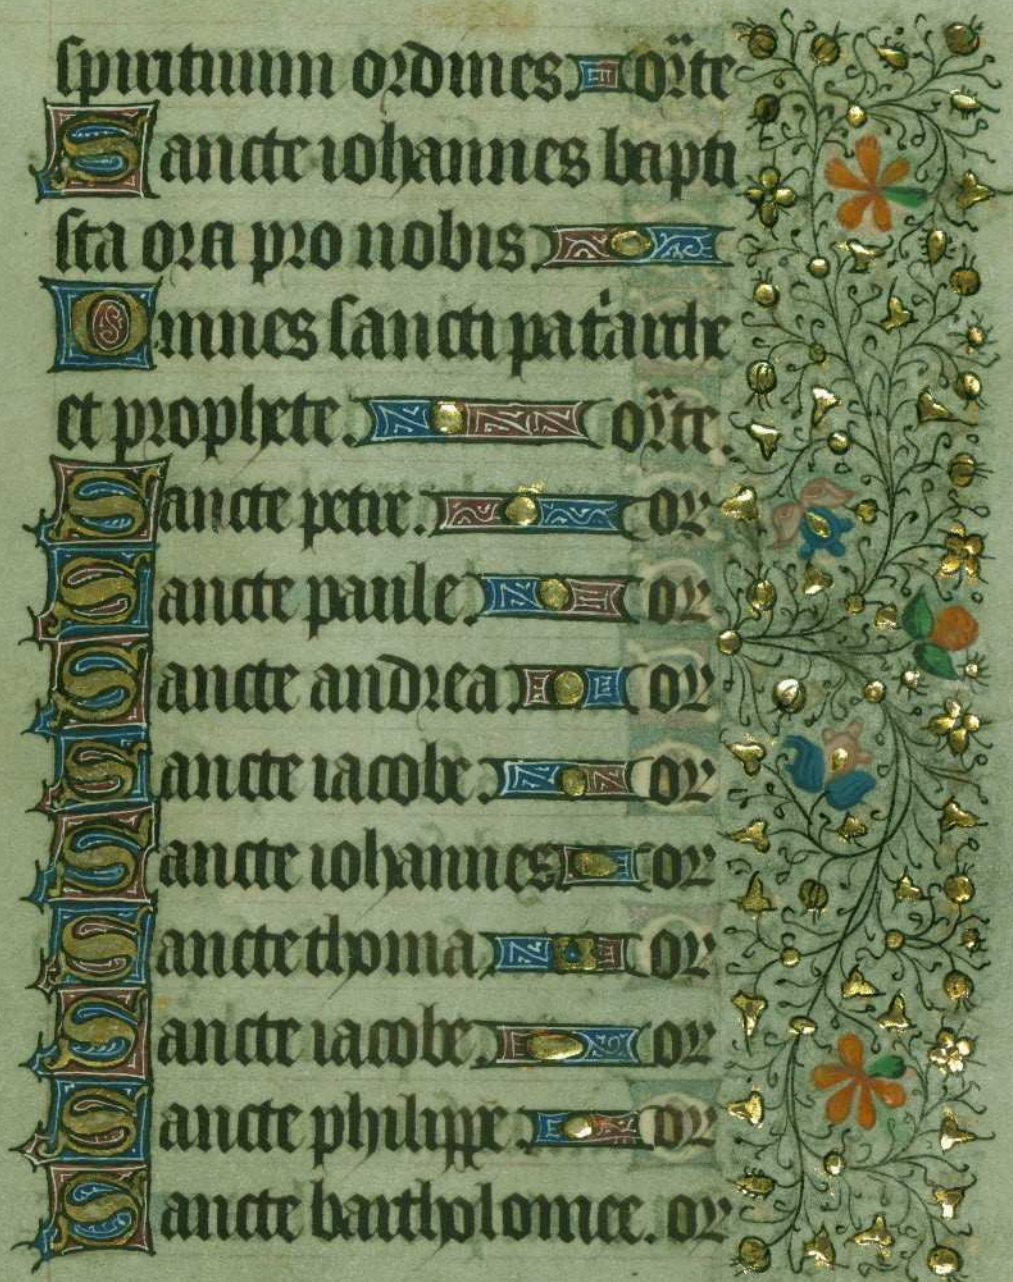 spirituum ordines or̈te
Sancte iohannes bapti
sta ora pro nobis
Omnes sancti pat̍arche
et prophete. or̈te.
Sancte petre. or
Sancte paule or
Sancte andrea or
Sancte iacobe or
Sancte iohannes or
Sancte thoma or
Sancte iacobe or
Sancte philippe or
Sancte bartholomee. or